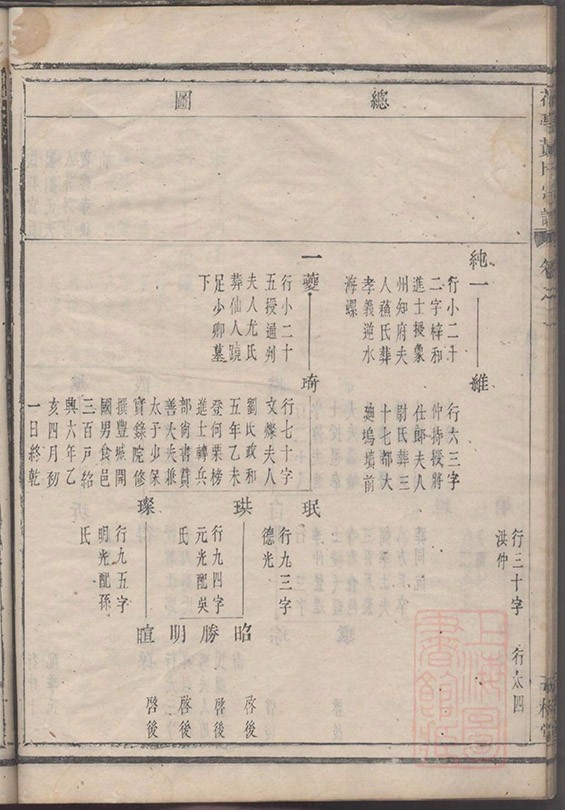 總圖
行三十字
洪仲
行太四
純一
行小二十
二字梓和
進士授象
州知府夫
人蘓氏葬
孝義逆水
海螺
維
行六三字
仲持授將
仕郎夫人
尉氏葬三
十七都大
塢墳前
一夔
行小二十
五授通州
夫人尤氏
葬仙人蹺
足少卿墓
下
琦
行七十字
文燦夫人
劉氏政和
五年乙未
登何㮚榜
進士轉兵
部尚書賛
善大夫兼
太子少保
實錄院修
撰豐城開
國男食邑
三百戸紹
興六年乙
亥四月初
一日終乾
珉
行九三字
德光
珙
行九四字
元光配吳
氏
璨
行九五字
明光配孫
氏
昭
啓後
勝
啓後
明
啓後
暄
啓後
上海圖書館藏